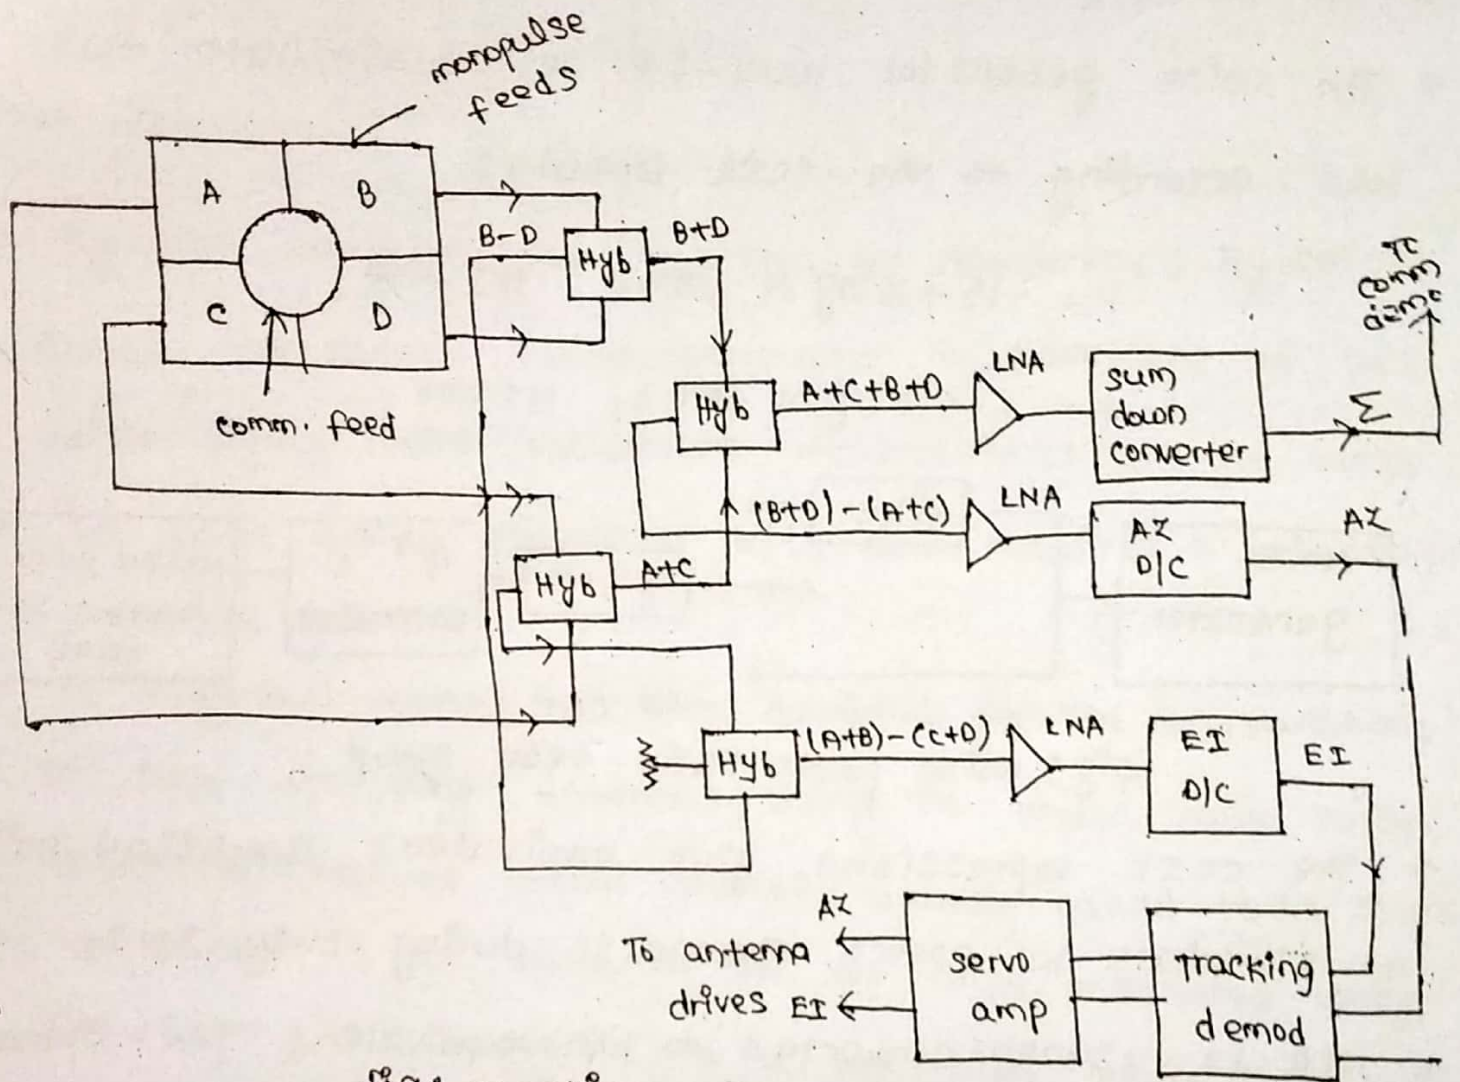 monopulse
feeds
A
B
C
D
comm. feed
B-D
Hyb
B+D
Hyb
A+C+B+D
LNA
sum
down
converter
Σ
To
comm
(B+D)-(A+C)
LNA
AZ
D/C
AZ
Hyb
A+C
Hyb
(A+B)-(C+D)
LNA
EI
D/C
EI
AZ
To antenna
drives EI
servo
amp
Tracking
demod